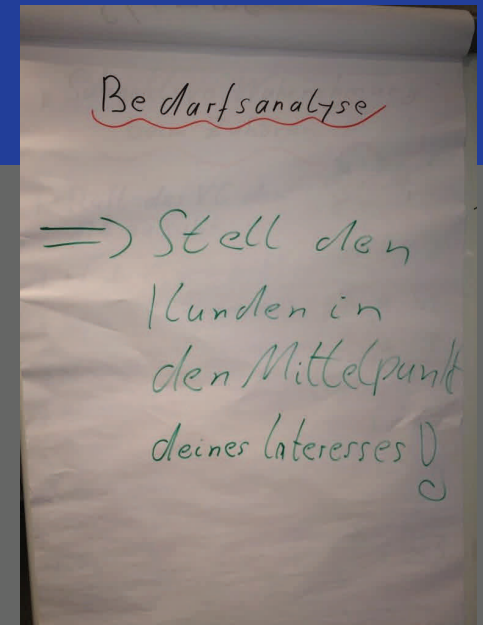 Bedarfsanalyse
=> Stell den
Kunden in
den Mittelpunkt
deines Interesses!